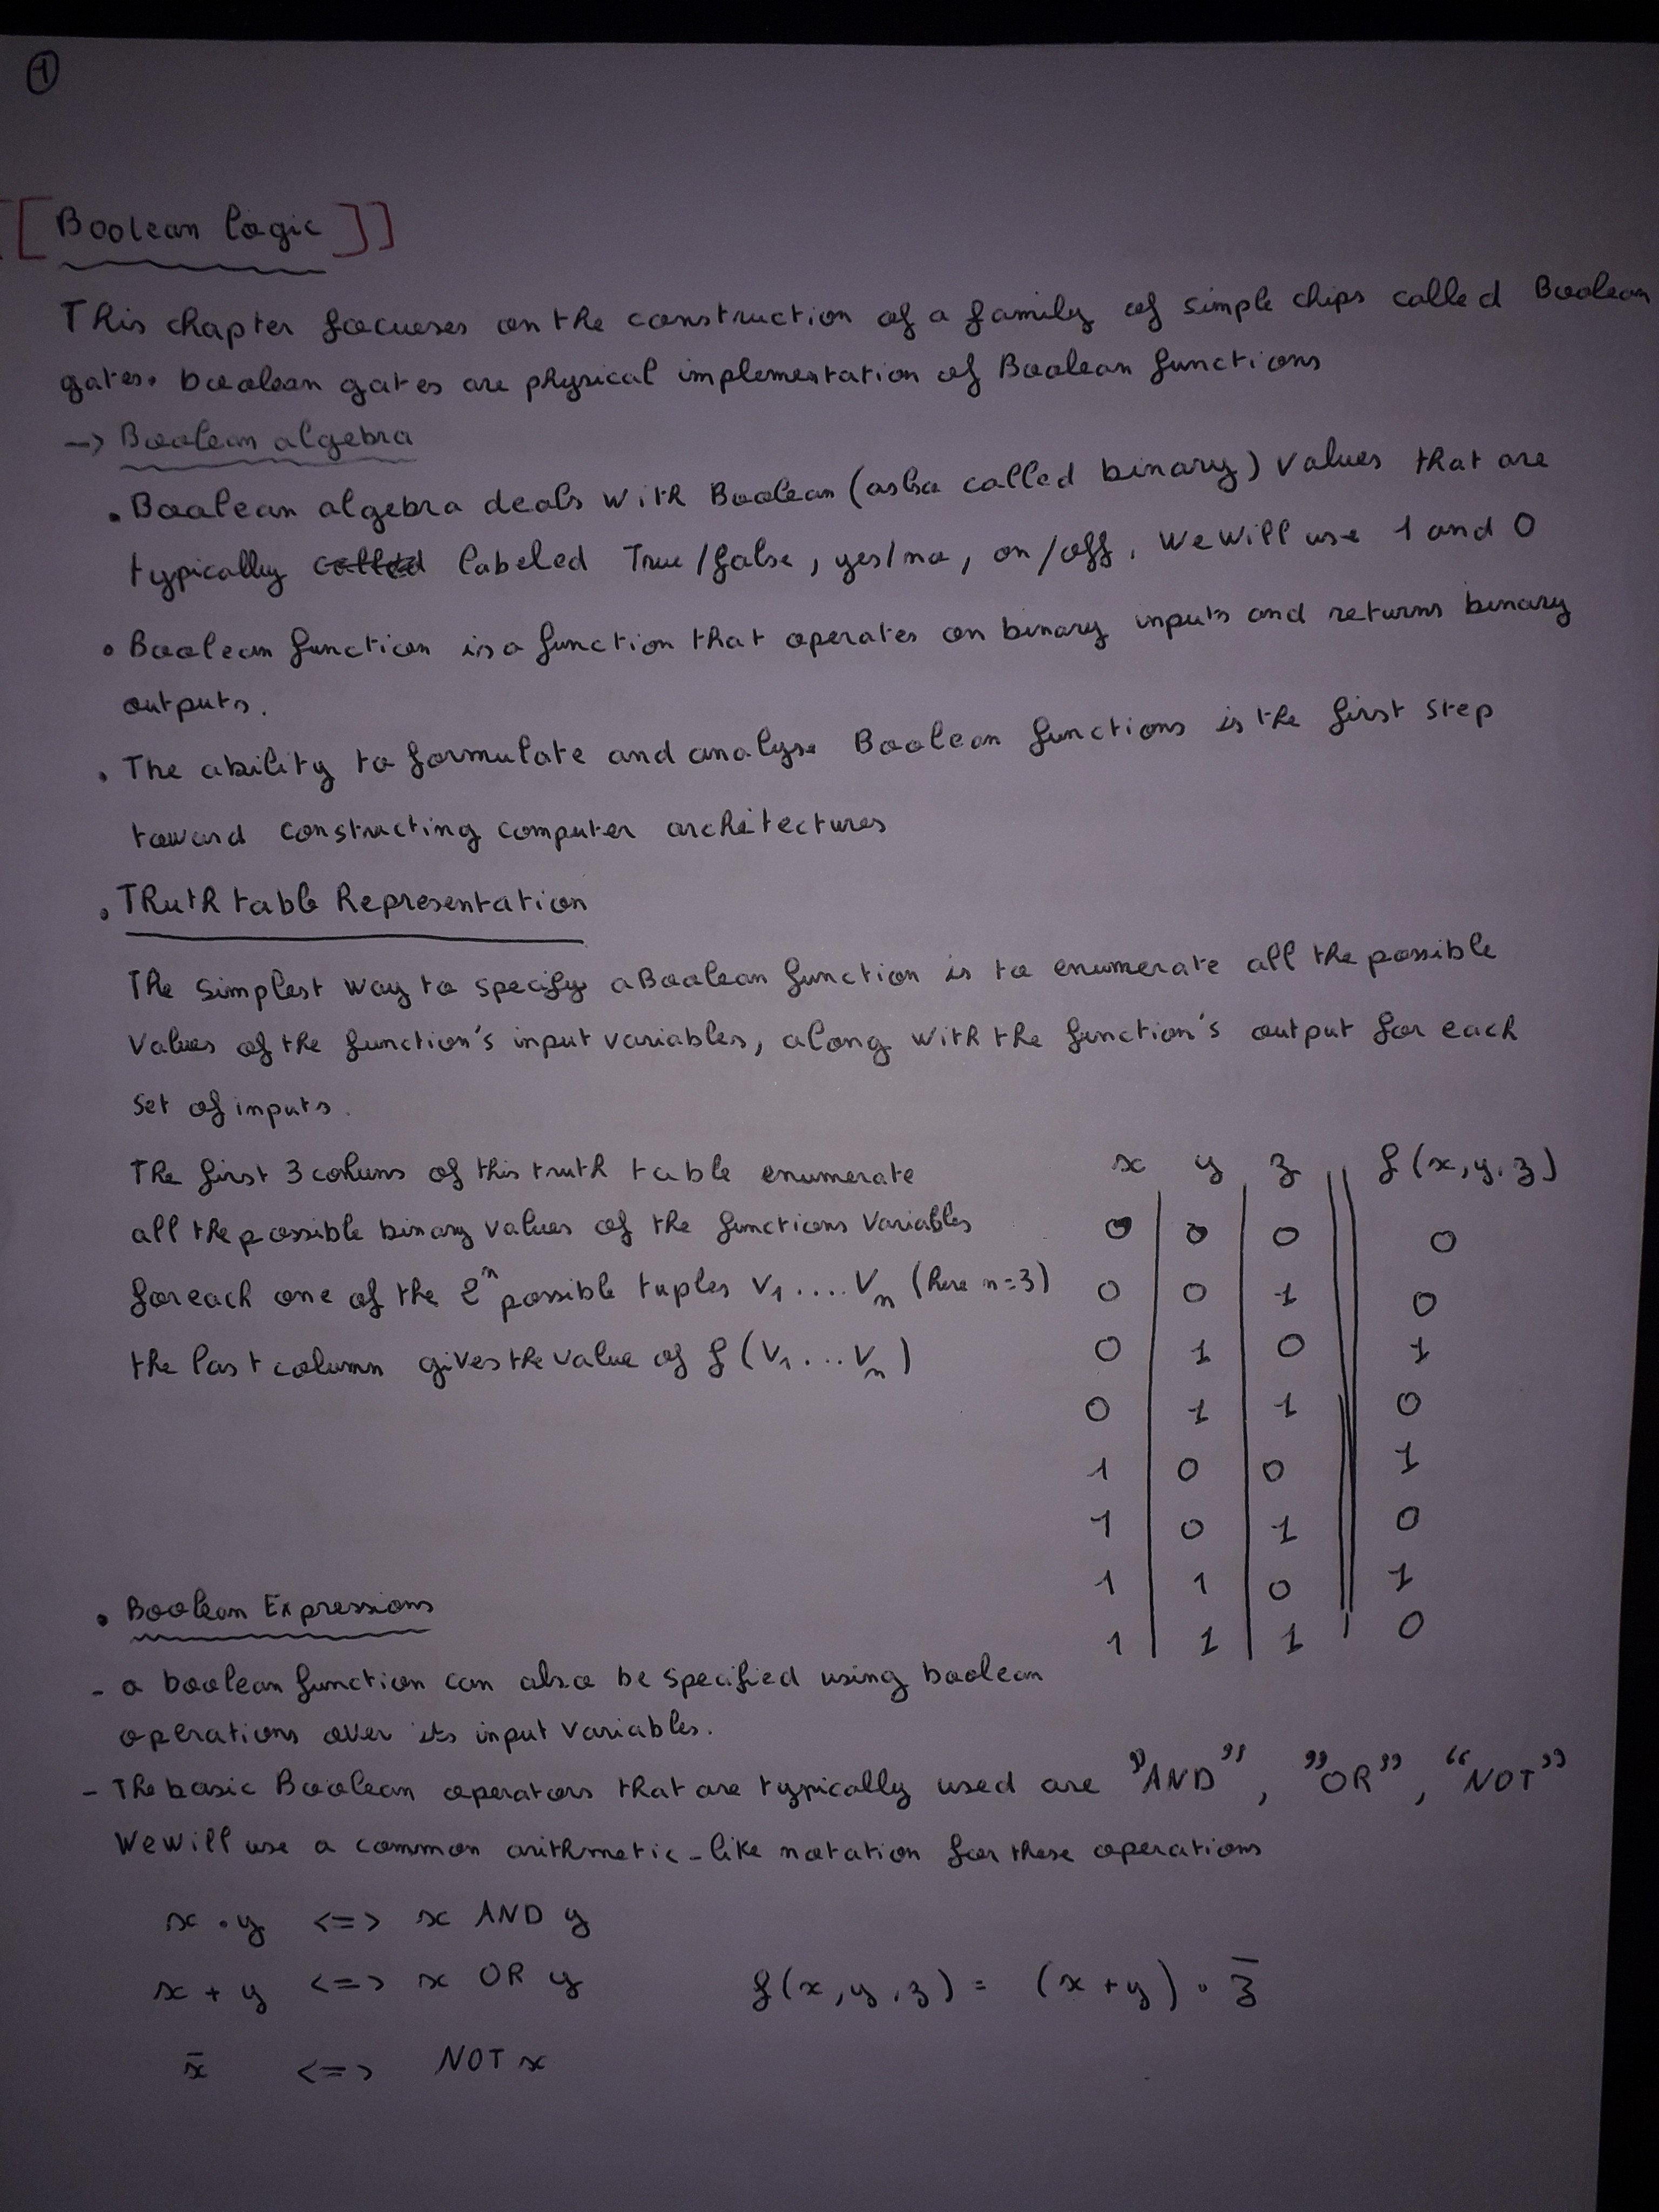 1
[[Boolean logic]]
This chapter focueses on the construction of a family of simple chips called Boolean
gates. boolean gates are physical implementation of Boolean functions
-> Boolean algebra
• Boolean algebra deals with Boolean (aslso called binary) values that are
typically called labeled True/false, yes/no, on/off. We will use 1 and 0
• Boolean function is a function that operates on binary inputs and returns binary
outputs.
• The ability to formulate and analyse Boolean functions is the first step
toward constructing computer architectures
• TRuth table Representation
The simplest way to specify a Boolean function is to enumerate all the possible
values of the function's input variables, along with the function's output for each
set of inputs.
The first 3 colums of this truth table enumerate
all the possible binary values of the functions variables
for each one of the 2^n possible tuples V₁ .... Vₙ (here n=3)
the last column gives the value of f (V₁ ... Vₙ)
x y z f(x,y,z)
0 0 0 0
0 0 1 0
0 1 0 1
0 1 1 0
1 0 0 1
1 0 1 0
1 1 0 1
1 1 1 0
• Boolean Expressions
- a boolean function can also be specified using boolean
operations over its input variables.
- The basic Boolean operators that are typically used are "AND", "OR", "NOT"
We will use a common arithmetic-like notation for these operations
x • y <=> x AND y
x + y <=> x OR y
x̄ <=> NOT x
f(x,y,z) = (x+y) • z̄